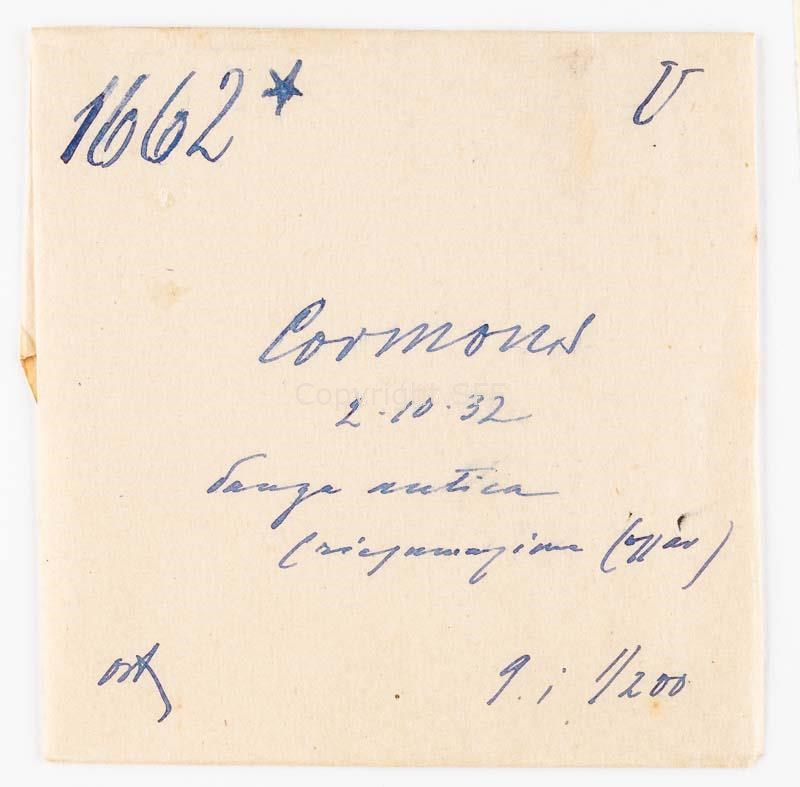 1662* U
Cormons
2-10-32
Danza antica
(riesumazione
ort
9. i 1/200
Copyright SFF